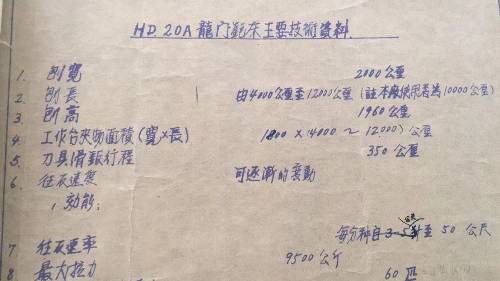 HD 20A 龍门刨床主要技術資料.
1. 刨寬 2000公厘
2. 刨長 由4000公厘至12000公厘 (註本廠使用者為10000公厘)
3. 刨高 1960公厘
4. 工作台夾物面積(寬×長) 1800 × 4000 ~ 12000) 公厘
5. 刀具滑鞍行程 350公厘
6. 往灰速度 可逐漸的变動
效能:
7. 往灰速率 每分种自 至 50 公尺
8 最大拉力 9500 公斤
60 匹